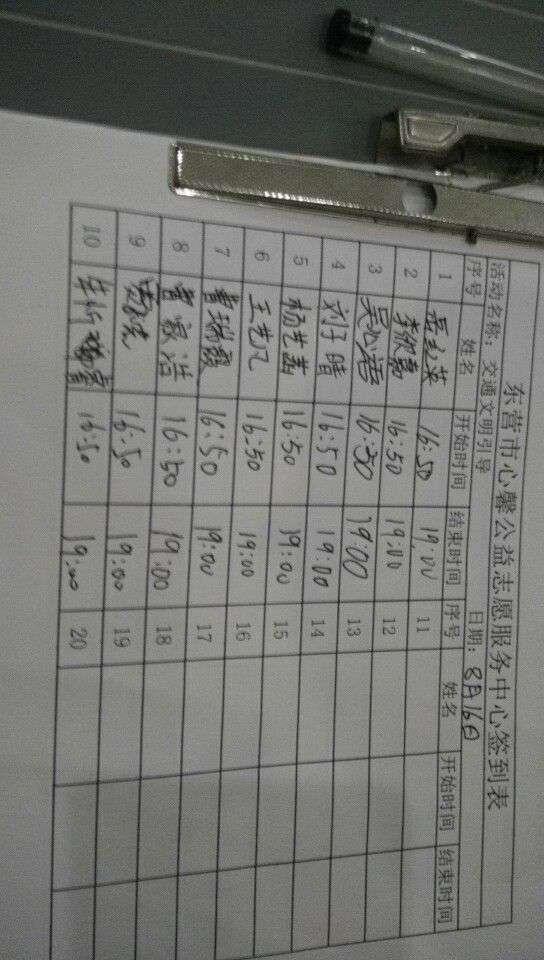 东营市心馨公益志愿服务中心签到表
活动名称：交通文明引导 日期：8月16日
序号 姓名 开始时间 结束时间 序号 姓名 开始时间 结束时间
1 16:50 19:00 11
2 16:50 19:00 12
3 16:50 19:00 13
4 刘子晴 16:50 19:00 14
5 杨艺茜 16:50 19:00 15
6 王艺凡 16:50 19:00 16
7 曹瑞毅 16:50 19:00 17
8 曹家浩 16:50 19:00 18
9 16:50 19:00 19
10 16:50 19:00 20